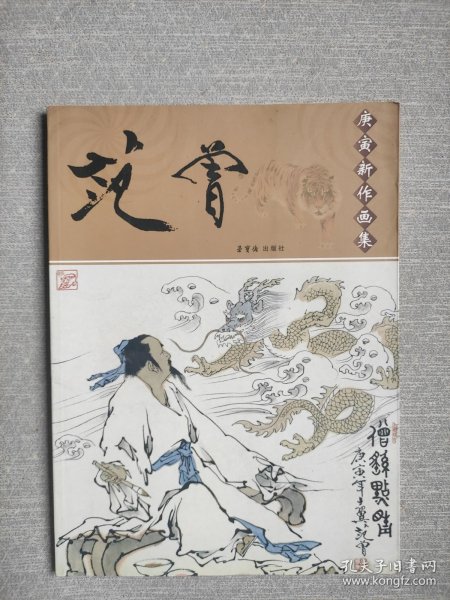 范曾
庚寅新作画集
荣宝斋 出版社
僧繇點睛
庚寅年十翼范曾
孔夫子旧书网
www.kongfz.com